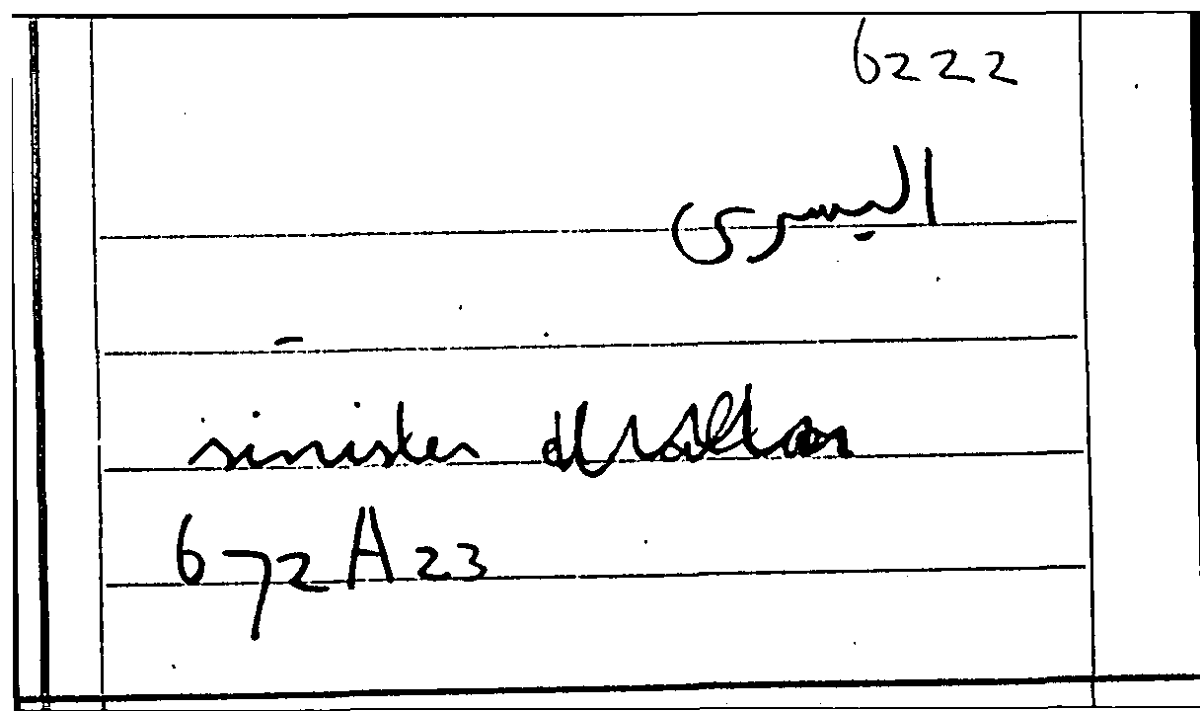 6222
اليسرى
sinister
672A23